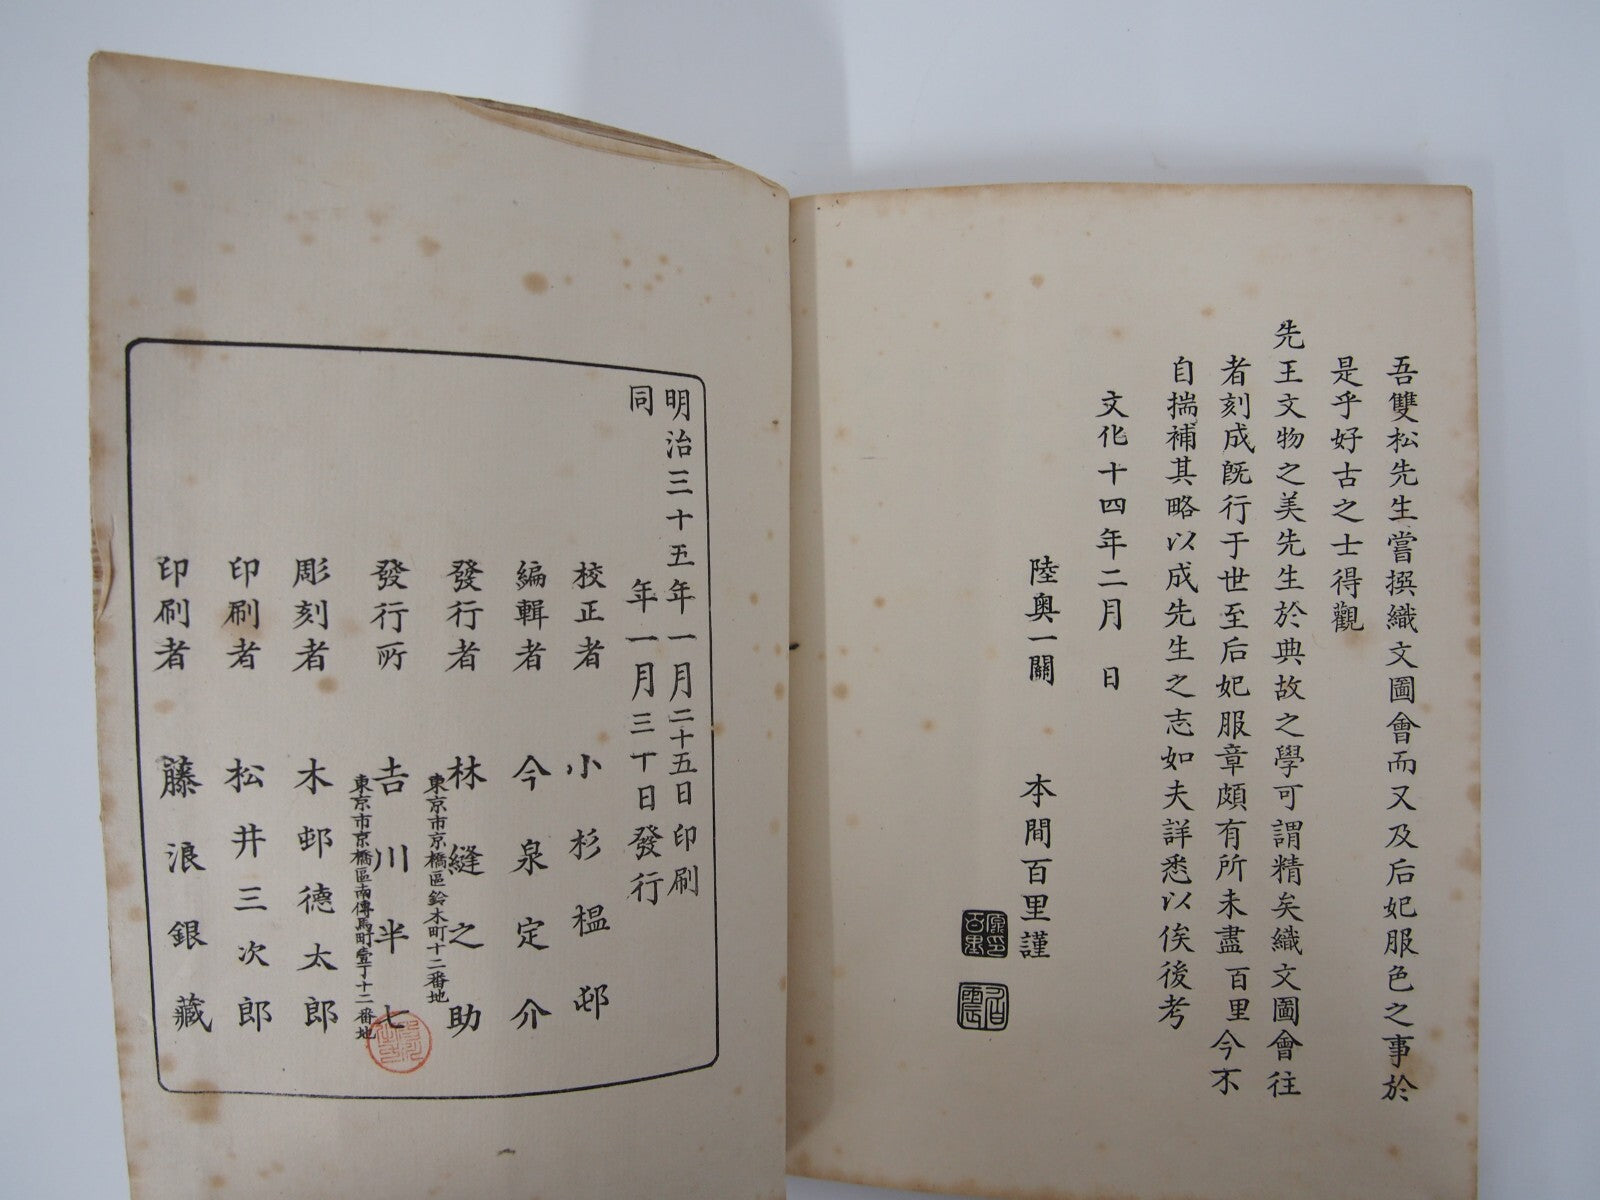 吾雙松先生嘗撰織文圖會而又及后妃服色之事於
是乎好古之士得觀
先王文物之美先生於典故之學可謂精矣織文圖會往
者刻成既行于世至后妃服章頗有所未盡百里今不
自揣補其略以成先生之志如夫詳悉以俟後考
文化十四年二月 日
陸奥一關 本間百里謹
明治三十五年一月二十五日印刷
同 年一月三十日發行
校正者 小杉榲邨
編輯者 今泉定介
發行者 林縫之助
東京市京橋區鈴木町十二番地
發行所 吉川半七
東京市京橋區南傳馬町壹丁十二番地
彫刻者 木邨德太郎
印刷者 松井三次郎
印刷者 藤浪銀藏